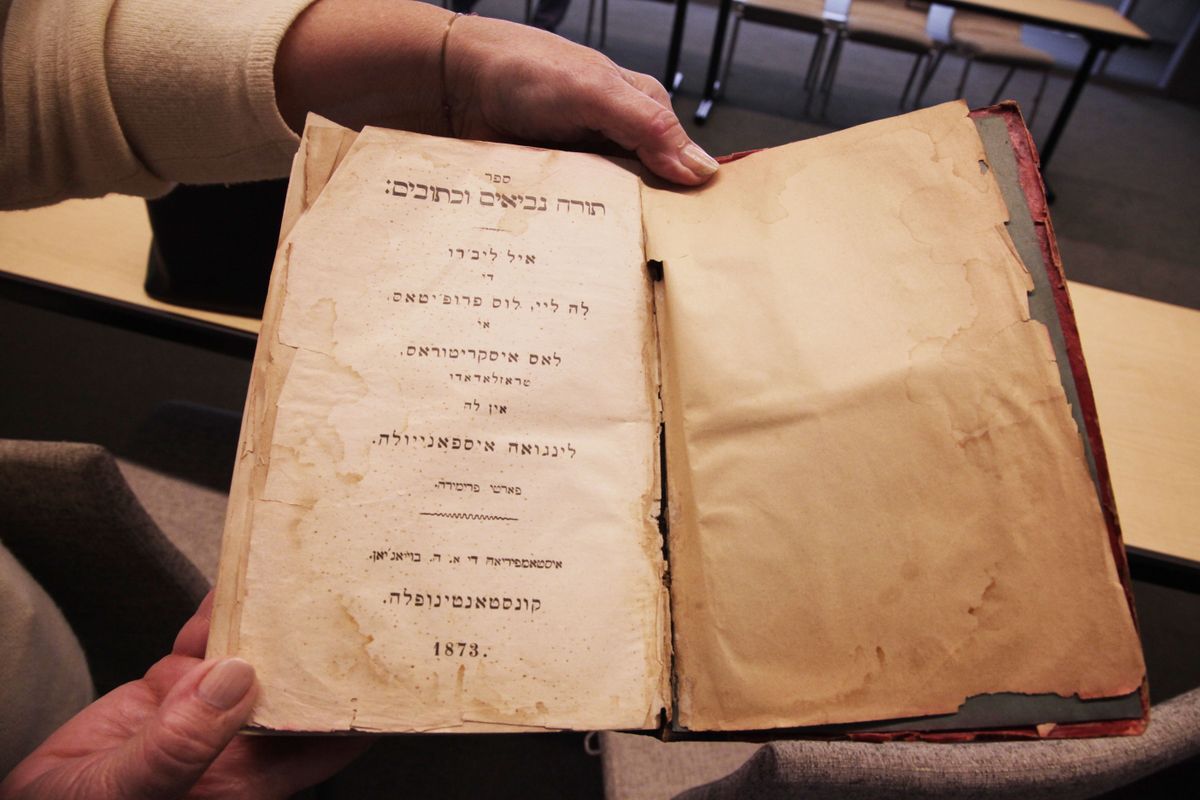 ספר
תורה נביאים וכתובים:
איל ליב׳רו
די
לה ליי, לוס פרופ׳יטאס,
אי
לאס איסקריטוראס,
טראזלאדאדו
אין לה
לינגואה איספאנייולה.
פארטי פרימירה.
איסטאמפיריאה די א. ה. בוייאג׳יאן.
קונסטאנטינופלה.
1873.